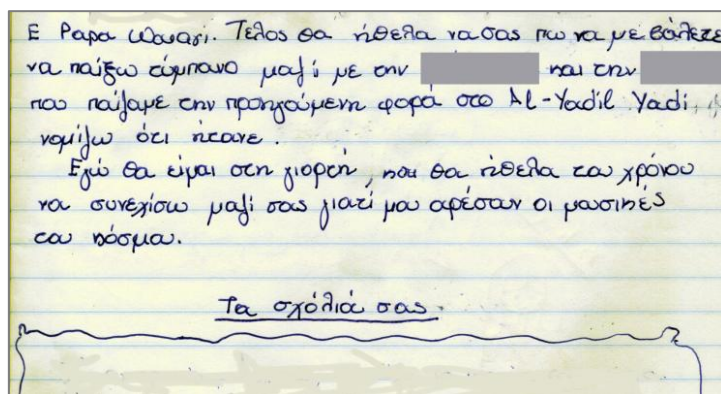 E Papa Waiari. Τέλος θα ήθελα να σας πω να με βάλετε
να παίξω τύμπανο μαζί με την και την
που παίξαμε την προηγούμενη φορά στο Al-Yadil Yadi,
νομίζω ότι ήτανε.
Εγώ θα είμαι στη γιορτή, και θα ήθελα του χρόνου
να συνεχίσω μαζί σας γιατί μου αρέσαν οι μουσικές
του κόσμου.
Τα σχόλιά σας.